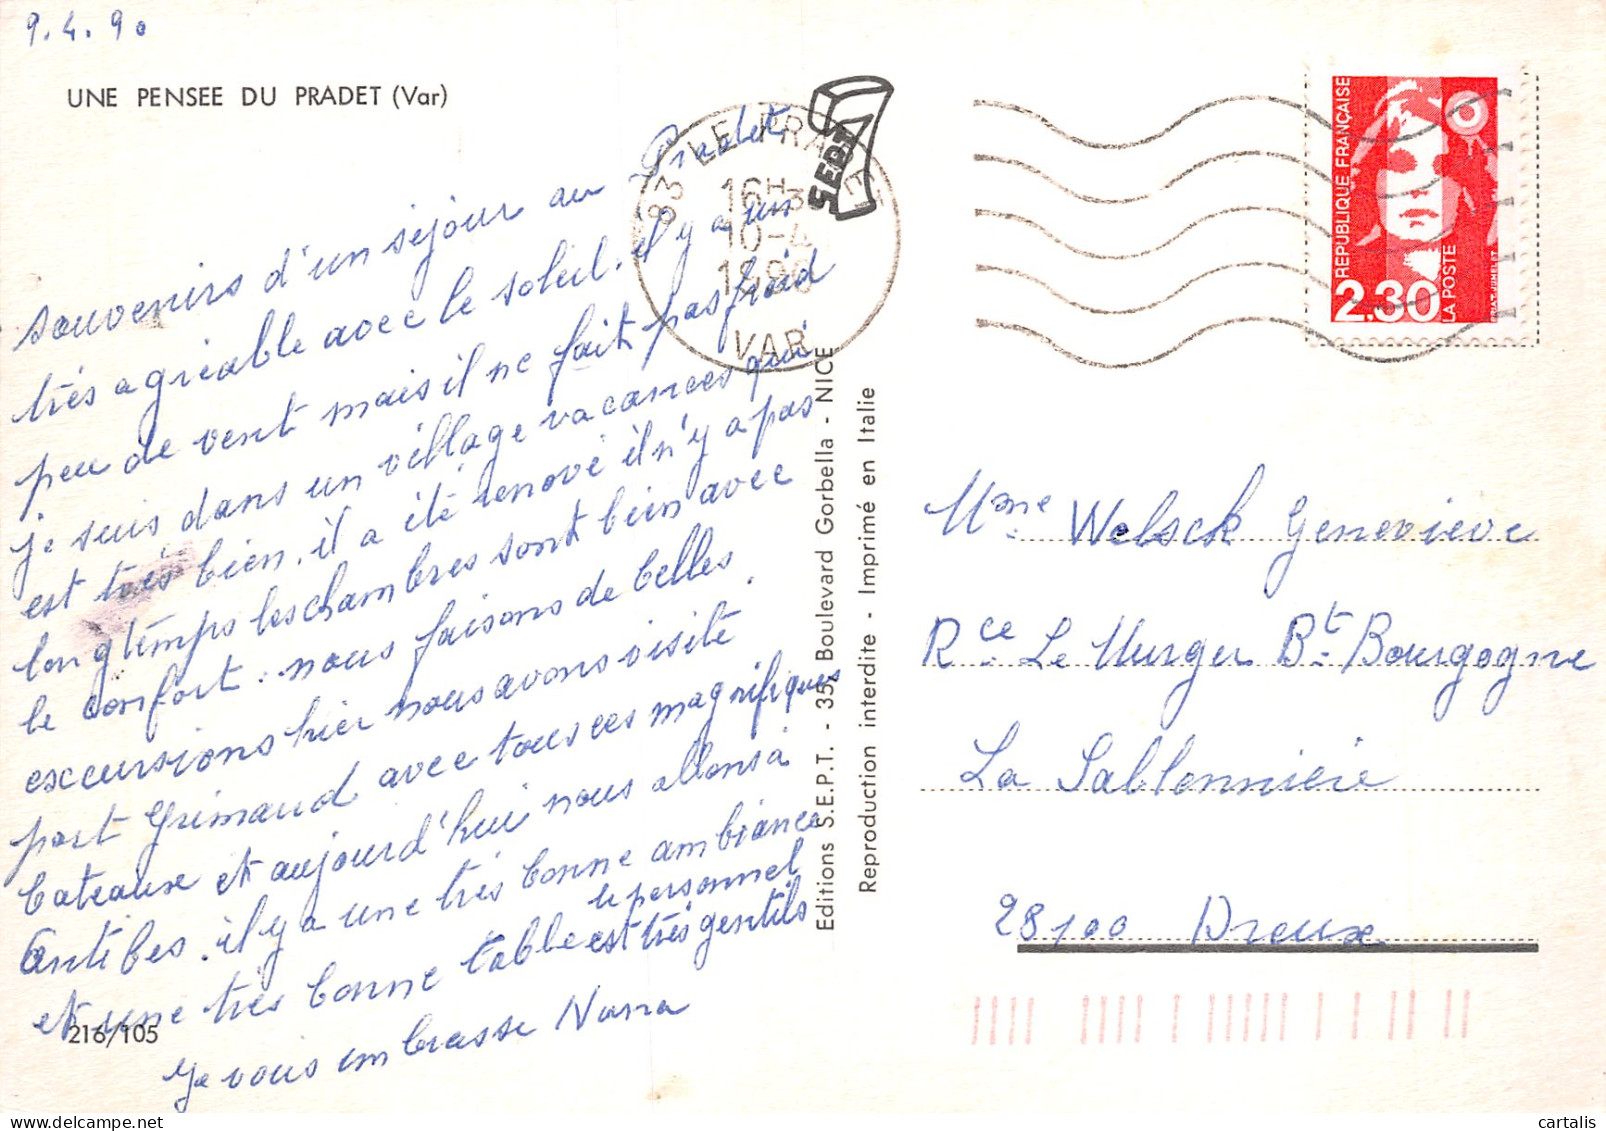 9.4.90
UNE PENSEE DU PRADET (Var)
souvenirs d'un séjour au Pradet
très agréable avec le soleil. il y a un
peu de vent mais il ne fait pas froid
je suis dans un village vacances qui
est très bien. il a été renové il n'y a pas
longtemps les chambres sont bien avec
le confort. nous faisons de belles
excursions hier nous avons visité
port Grimaud avec tous ces magnifiques
bateaux et aujourd'hui nous allons à
Antibes. il y a une très bonne ambiance
et une très bonne table le personnel
est très gentils
Je vous embrasse Nana
216/105
83 LE PRADET
16H3
10-4
1990
VAR
SEPT
Editions S.E.P.T. - 35, Boulevard Gorbella - NICE
Reproduction interdite - Imprimé en Italie
REPUBLIQUE FRANÇAISE
2.30
LA POSTE
BRIAT. JUMELET
Mme Welsck Genevieve
Rce Le Murger Bt Bourgogne
La Sablonnière
28100 Dreux
cartalis